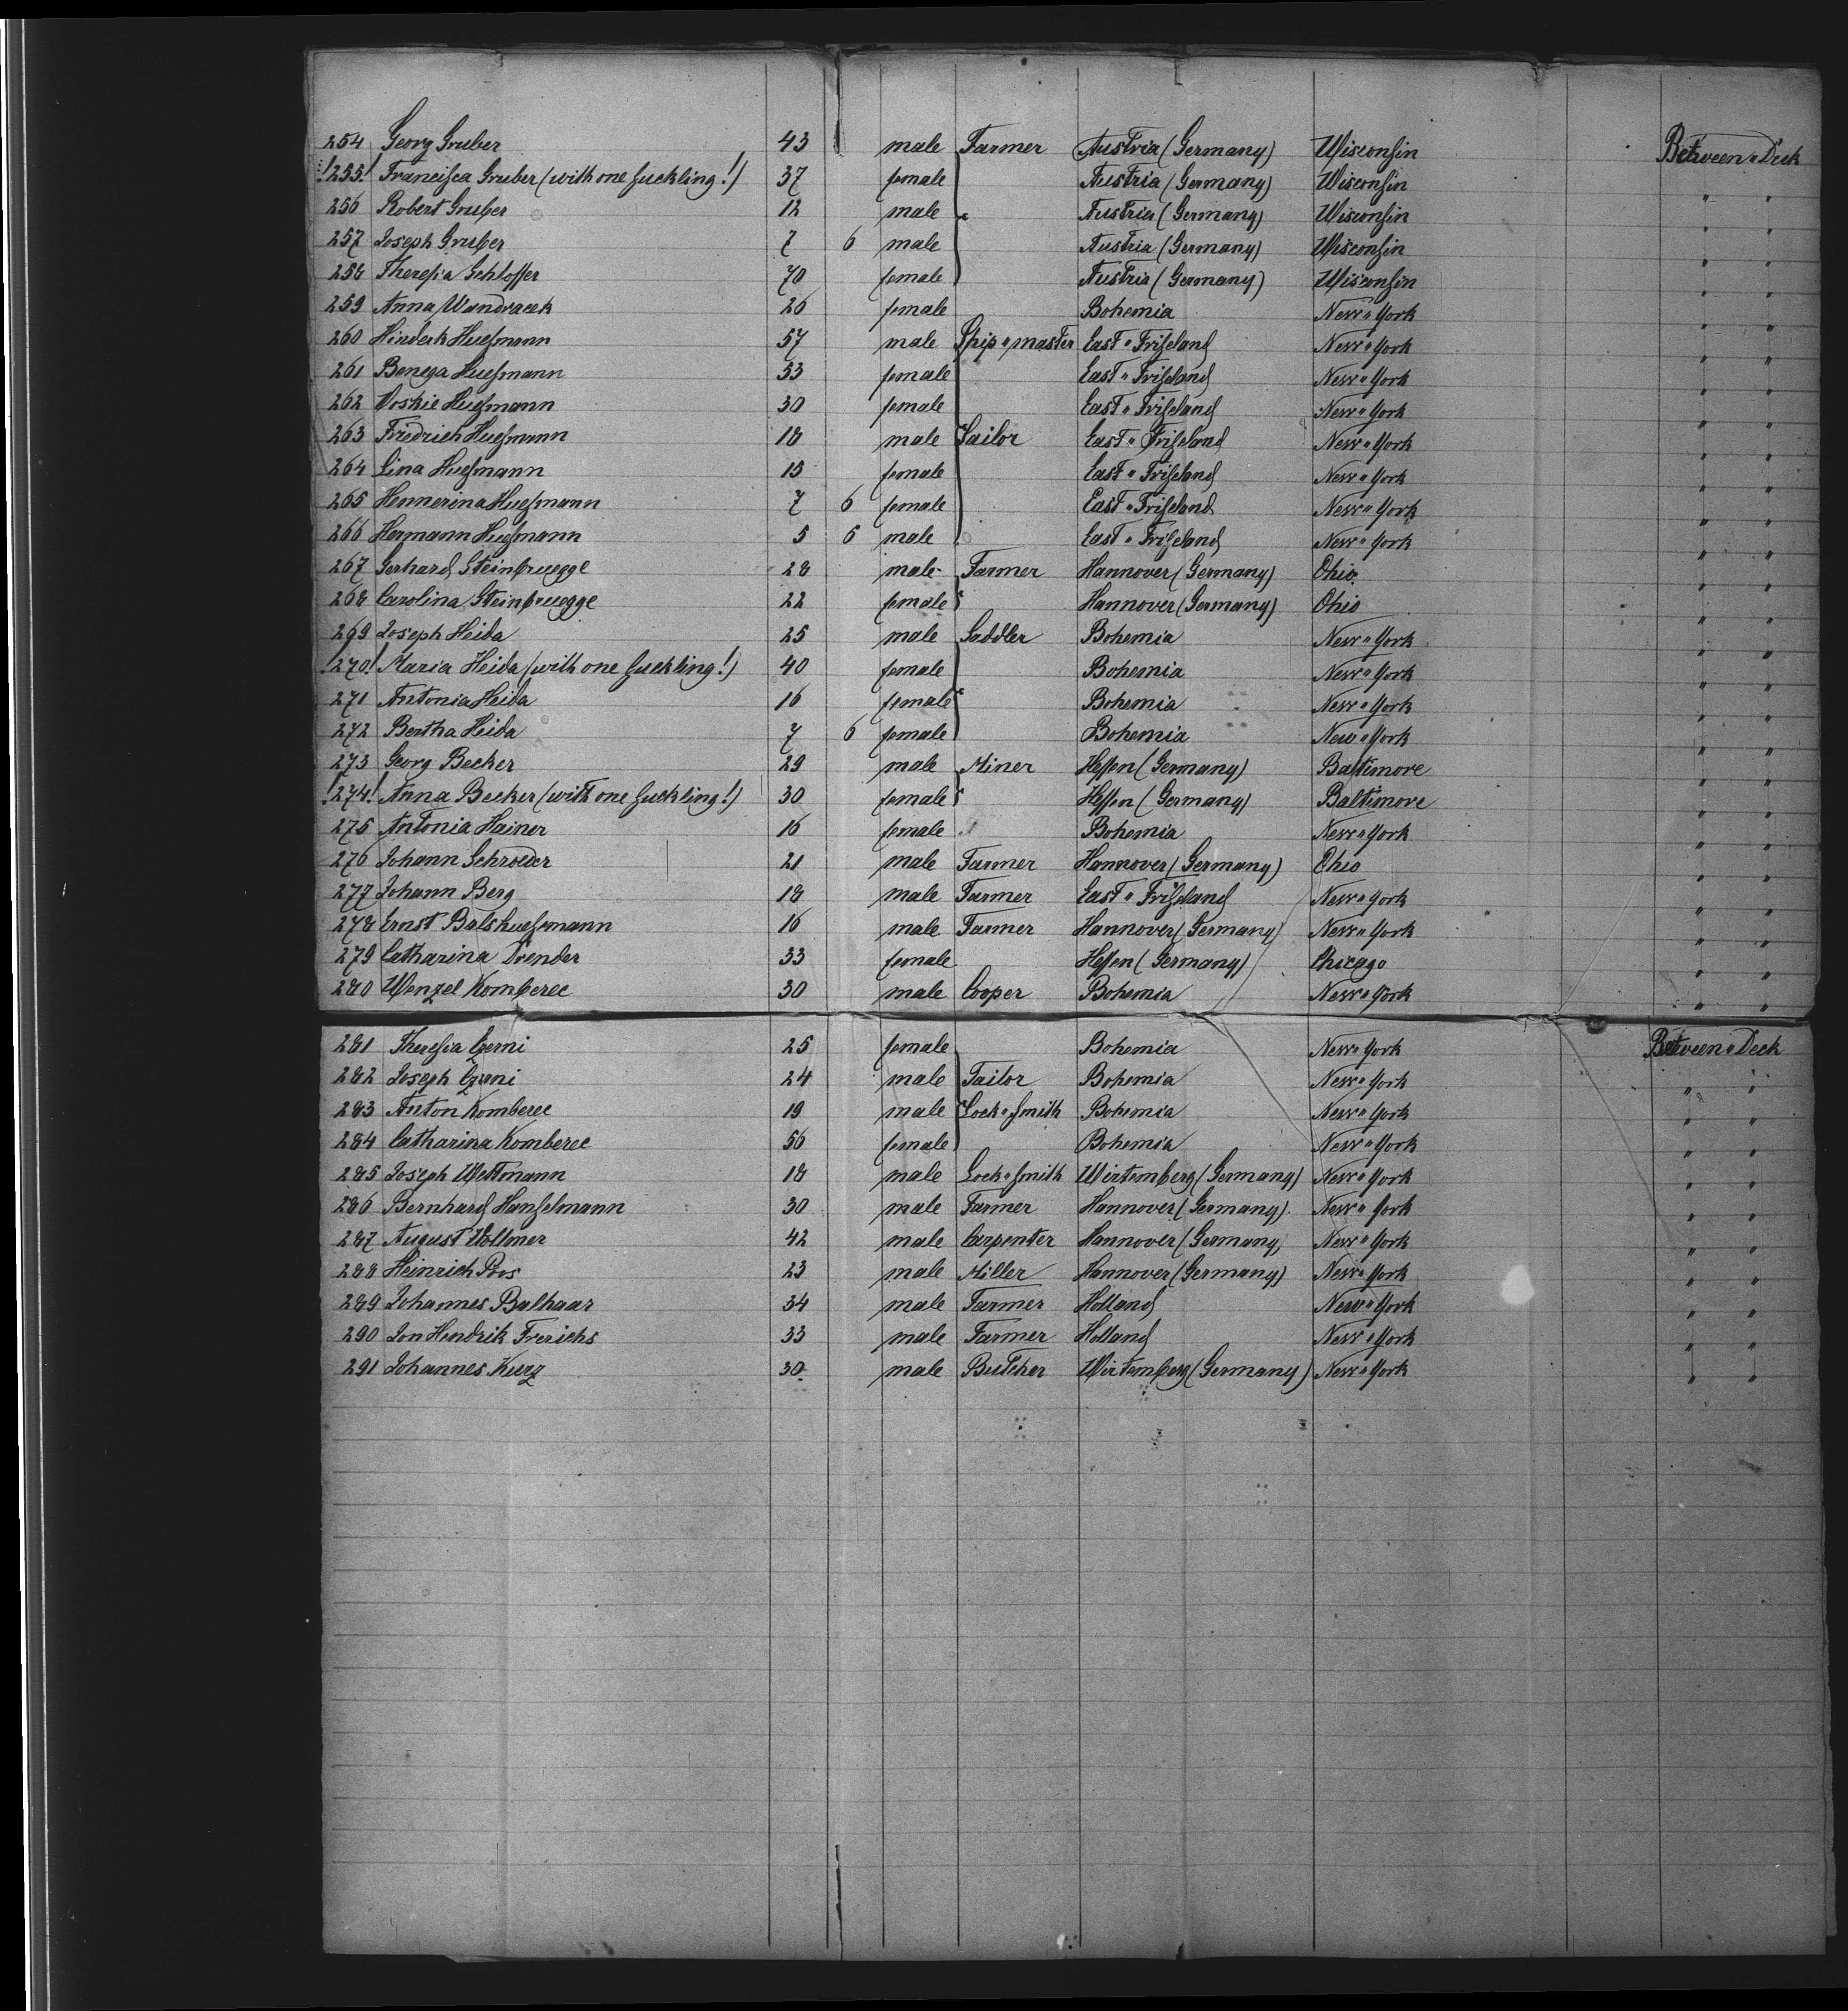 254 Georg Gruber 43 male Farmer Austria (Germany) Wisconsin Between " Deck
!255! Francisca Gruber (with one suckling!) 37 female Austria (Germany) Wisconsin " "
256 Robert Gruber 12 male Austria (Germany) Wisconsin " "
257 Joseph Gruber 7 6 male Austria (Germany) Wisconsin " "
258 Theresia Schlosser 70 female Austria (Germany) Wisconsin " "
259 Anna Wandracek 26 female Bohemia New " York " "
260 Hinderk Huesmann 57 male Ship " master East " Friseland New " York " "
261 Benega Huesmann 53 female East " Friseland New " York " "
262 Voskie Huesmann 30 female East " Friseland New " York " "
263 Friedrich Huesmann 18 male Sailor East " Friseland New " York " "
264 Lina Huesmann 15 female East " Friseland New " York " "
265 Hennerina Huesmann 7 6 female East " Friseland New " York " "
266 Hermann Huesmann 5 6 male East " Friseland New " York " "
267 Gerhard Steinbruegge 28 male Farmer Hannover (Germany) Ohio " "
268 Carolina Steinbruegge 22 female Hannover (Germany) Ohio " "
269 Joseph Heida 25 male Saddler Bohemia New " York " "
!270! Maria Heida (with one suckling!) 40 female Bohemia New " York " "
271 Antonia Heida 16 female Bohemia New " York " "
272 Bertha Heida 7 6 female Bohemia New " York " "
273 Georg Becker 29 male Miner Hessen (Germany) Baltimore " "
!274! Anna Becker (with one suckling!) 30 female Hessen (Germany) Baltimore " "
275 Antonia Hainer 16 female Bohemia New " York " "
276 Johann Schroeder 21 male Farmer Hannover (Germany) Ohio " "
277 Johann Berg 18 male Farmer East " Friseland New " York " "
278 Ernst Balskuesmann 16 male Farmer Hannover (Germany) New " York " "
279 Catharina Drender 33 female Hessen (Germany) Chicago " "
280 Wenzel Komberec 30 male Cooper Bohemia New " York " "
281 Theresia Czerni 25 female Bohemia New " York Between " Deck
282 Joseph Czerni 24 male Tailor Bohemia New " York " "
283 Anton Komberec 19 male Lock " smith Bohemia New " York " "
284 Catharina Komberec 56 female Bohemia New " York " "
285 Joseph Wettmann 18 male Lock " smith Wirtemberg (Germany) New " York " "
286 Bernhard Hanselmann 30 male Farmer Hannover (Germany) New " York " "
287 August Vollmer 42 male Carpenter Hannover (Germany) New " York " "
288 Heinrich Poos 23 male Miller Hannover (Germany) New " York " "
289 Johannes Balhaar 34 male Farmer Holland New " York " "
290 Jon Hendrik Frerichs 33 male Farmer Holland New " York " "
291 Johannes Kurz 30 male Butcher Wirtemberg (Germany) New " York " "